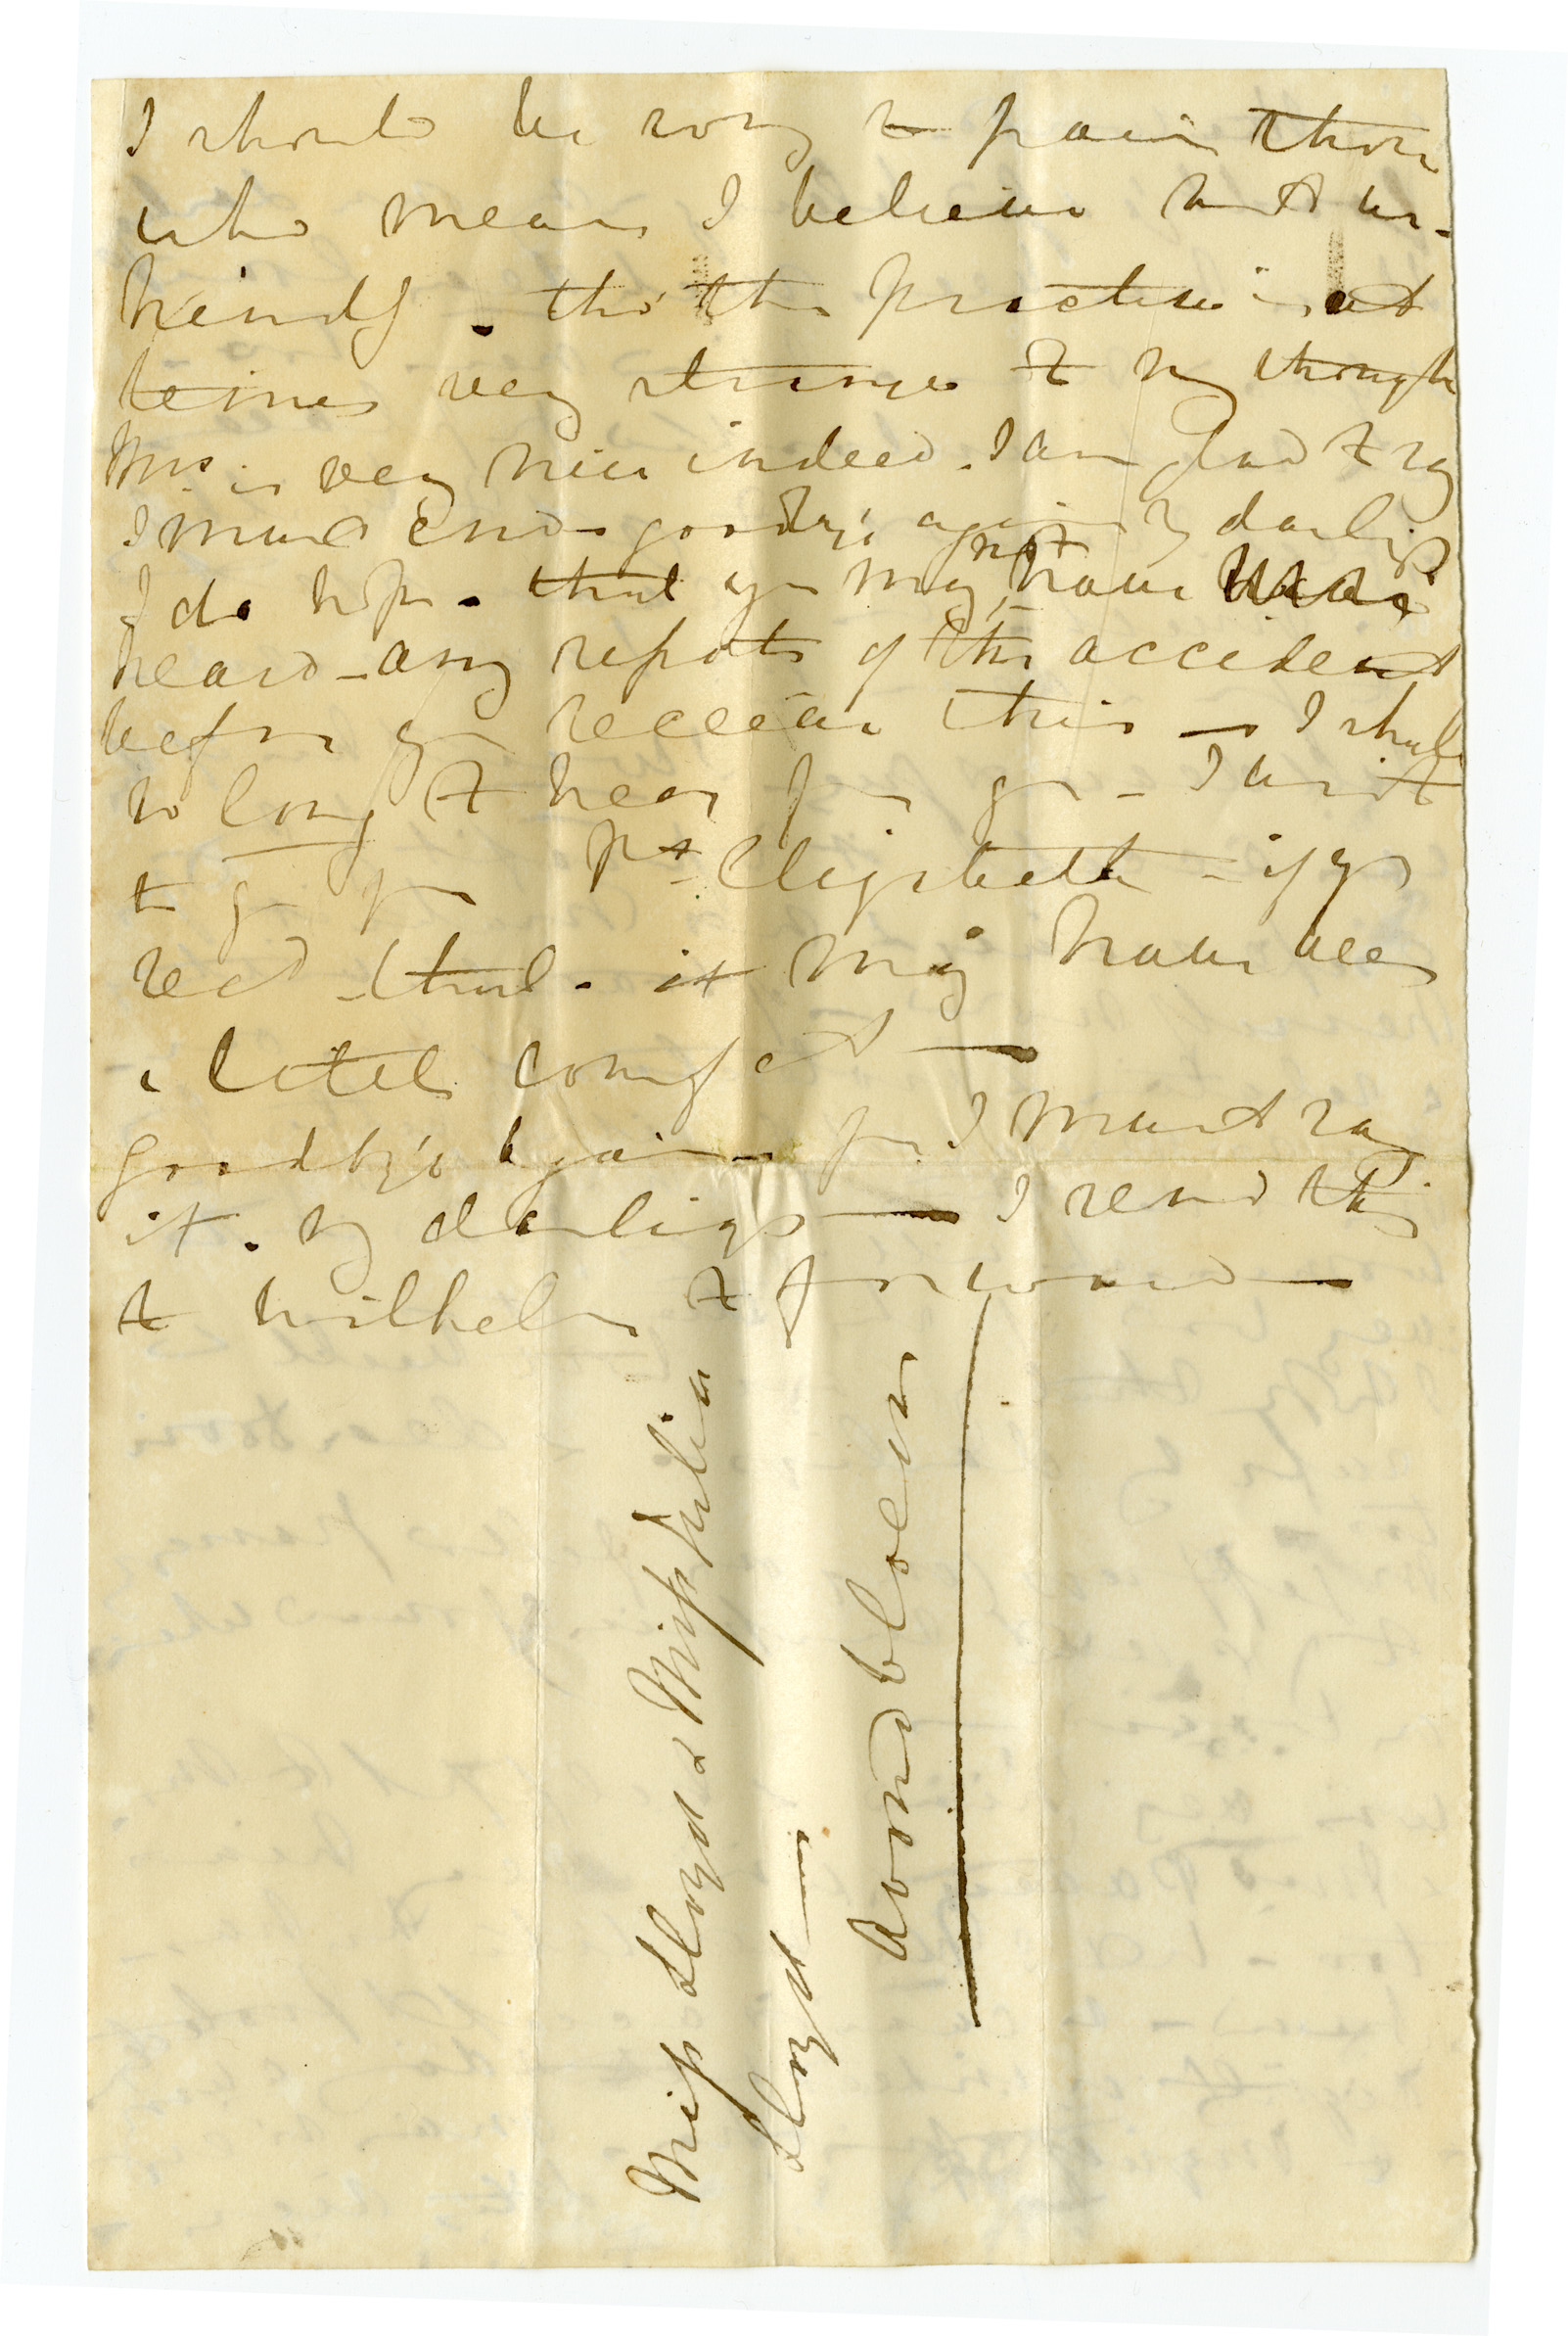 I should be sorry to pain those
who mean I believe not un-
kindly. tho' the practice is at
times very strange to my though
Mrs. is very nice indeed. I am glad to say
I must end goodbye again my darlings
I do hope. that you may not have
heard any reports of this accident
before you receive this — I shall
so long to hear from you – I wrote
to you from Pt. Elizabeth – if you
recd that. it may have been
a little comfort —
goodbye again – for I must say
it. my darlings — I send this
to Wilhelm to forward —
Miss Lloyd & Miss Julia
Lloyd —
Avondbloem